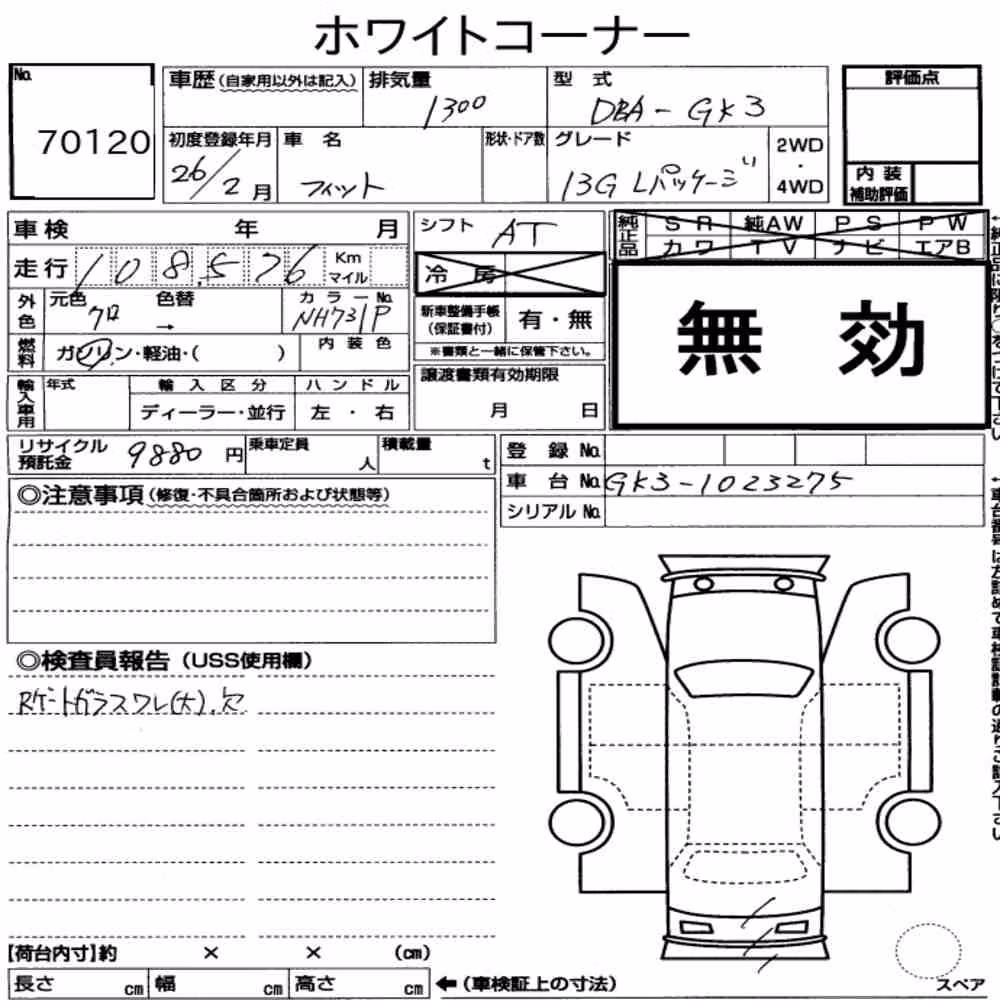 ホワイトコーナー
No. 70120
車歴(自家用以外は記入)
排気量 1300
型式 DBA-GK3
評価点
初度登録年月 26/2月
車名 フィット
形状・ドア数
グレード 13G Lパッケージ
2WD・4WD
内装補助評価
車検 年 月
シフト AT
純正品 SR 純AW PS PW
カワ TV ナビ エアB
走行 108,576 Km マイル
冷房
無効
外色 元色 クロ 色替 →
カラーNo. NH731P
新車整備手帳(保証書付) 有・無
※書類と一緒に保管下さい。
燃料 ガソリン・軽油・( )
内装色
譲渡書類有効期限
月 日
輸入車用 年式 輸入区分 ハンドル
ディーラー・並行 左・右
リサイクル預託金 9880円
乗車定員 人
積載量 t
登録No.
車台No. GK3-1023275
シリアルNo.
◎注意事項(修復・不具合箇所および状態等)
◎検査員報告(USS使用欄)
Rゲートガラスワレ(大).欠
【荷台内寸】約 × × (cm)
長さ cm 幅 cm 高さ cm
←(車検証上の寸法)
スペア